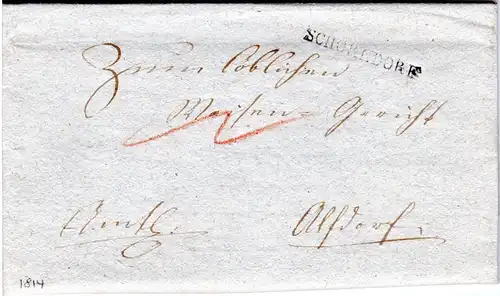 SCHORNDORF
Zum Löblichen
Waisen-Gericht
Amtl.
Alfdorf.
1814